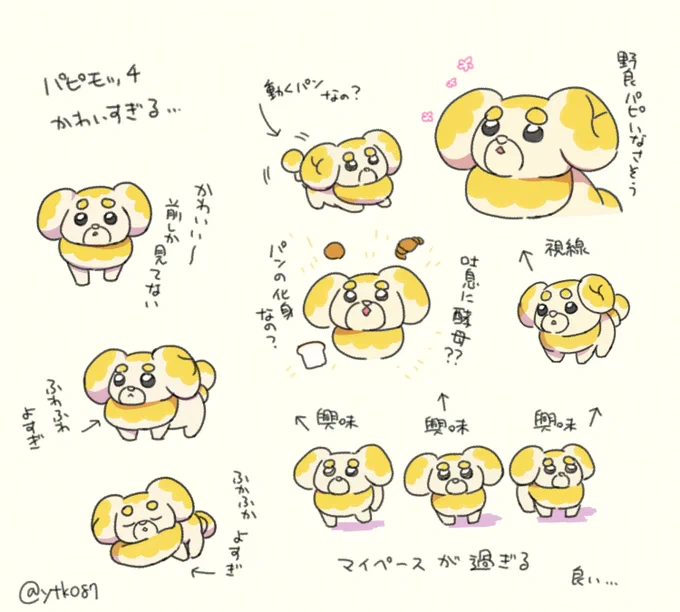 パピモッチ
かわいすぎる…
動くパン
なの?
野良パピいなさそう
かわいい〜
前しか
見てない
パンの化身
なの?
吐息に酵母??
視線
ふわふわ
よすぎ
興味
興味
興味
ふかふか
よすぎ
マイペースが過ぎる
良い…
@ytk087